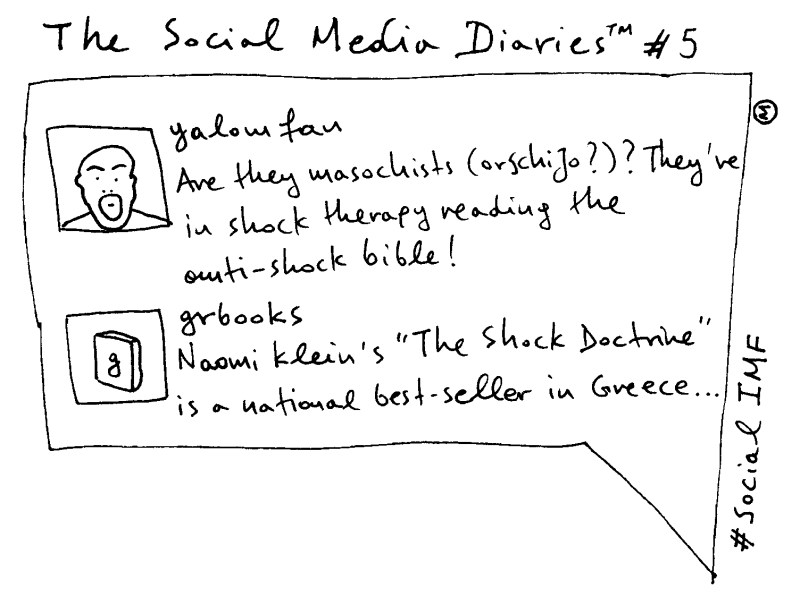 The Social Media Diaries™ #5
M
yalomfan
Are they masochists (or schizo?)? They've
in shock therapy reading the
anti-shock bible!
grbooks
g
Naomi Klein's "The Shock Doctrine"
is a national best-seller in Greece...
#Social IMF